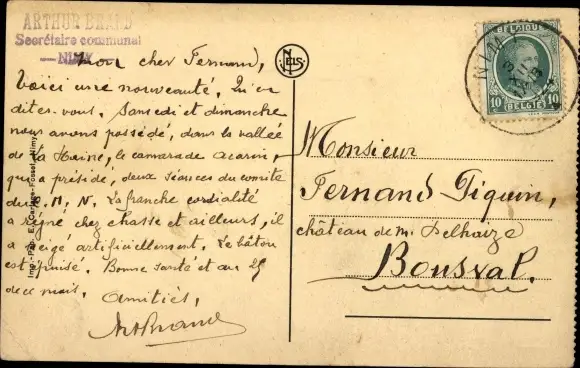 ARTHUR BRARD
Secrétaire communal
— NIMY
Mon cher Fernand,
Voici une nouveauté. Qu'en
dites-vous. Samedi et dimanche
nous avons possédé, dans la vallée
de la Haine, le camarade
qui a préside, deux séances du comité
du M. N. La franche cordialité
a régné chez Chasse et ailleurs, il
a neigé artificiellement. Le bâton
est Bonne santé et au 25
de ce mois. Amitiés,
NELS
BELGIQUE
10 10
BELGIË
NIMY
Monsieur
Fernand Piquin,
château de M. Delhaize
Bousval.
Imp.-Pap. E. Fossel, Nimy